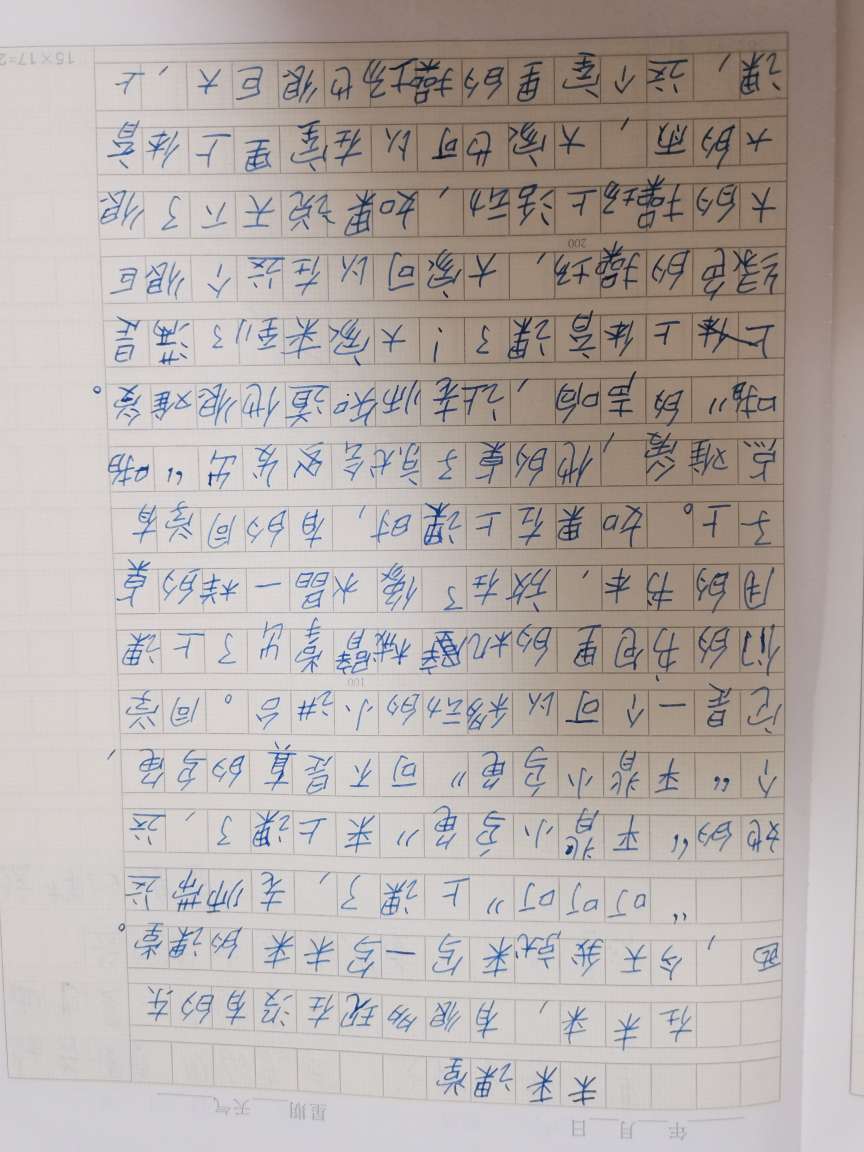 年 月 日 星期 天气
未来课堂
在未来,有很多现在没有的东
西,今天我就来写一写未来的课堂。
“叮叮叮”上课了,老师带这
她的“平背小乌龟”来上课了,这
个“平背小乌龟”可不是真的乌龟,
它是一个可以移动的小讲台。同学
100
们的书包里的机器臂拿出了上课
用的书本,放在了像水晶一样的桌
子上。如果在上课时,有的同学有
点难受,他的桌子就会发出“啪
啪”的声响,让老师知道他很难受。
上体育课了!大家来到了满是
绿色的操场,大家可以在这个很巨
200
大的操场上活动,如果说天下了很
大的雨,大家也可以在室里上体育
课,这个室里的操场也很巨大,上
15×17=2